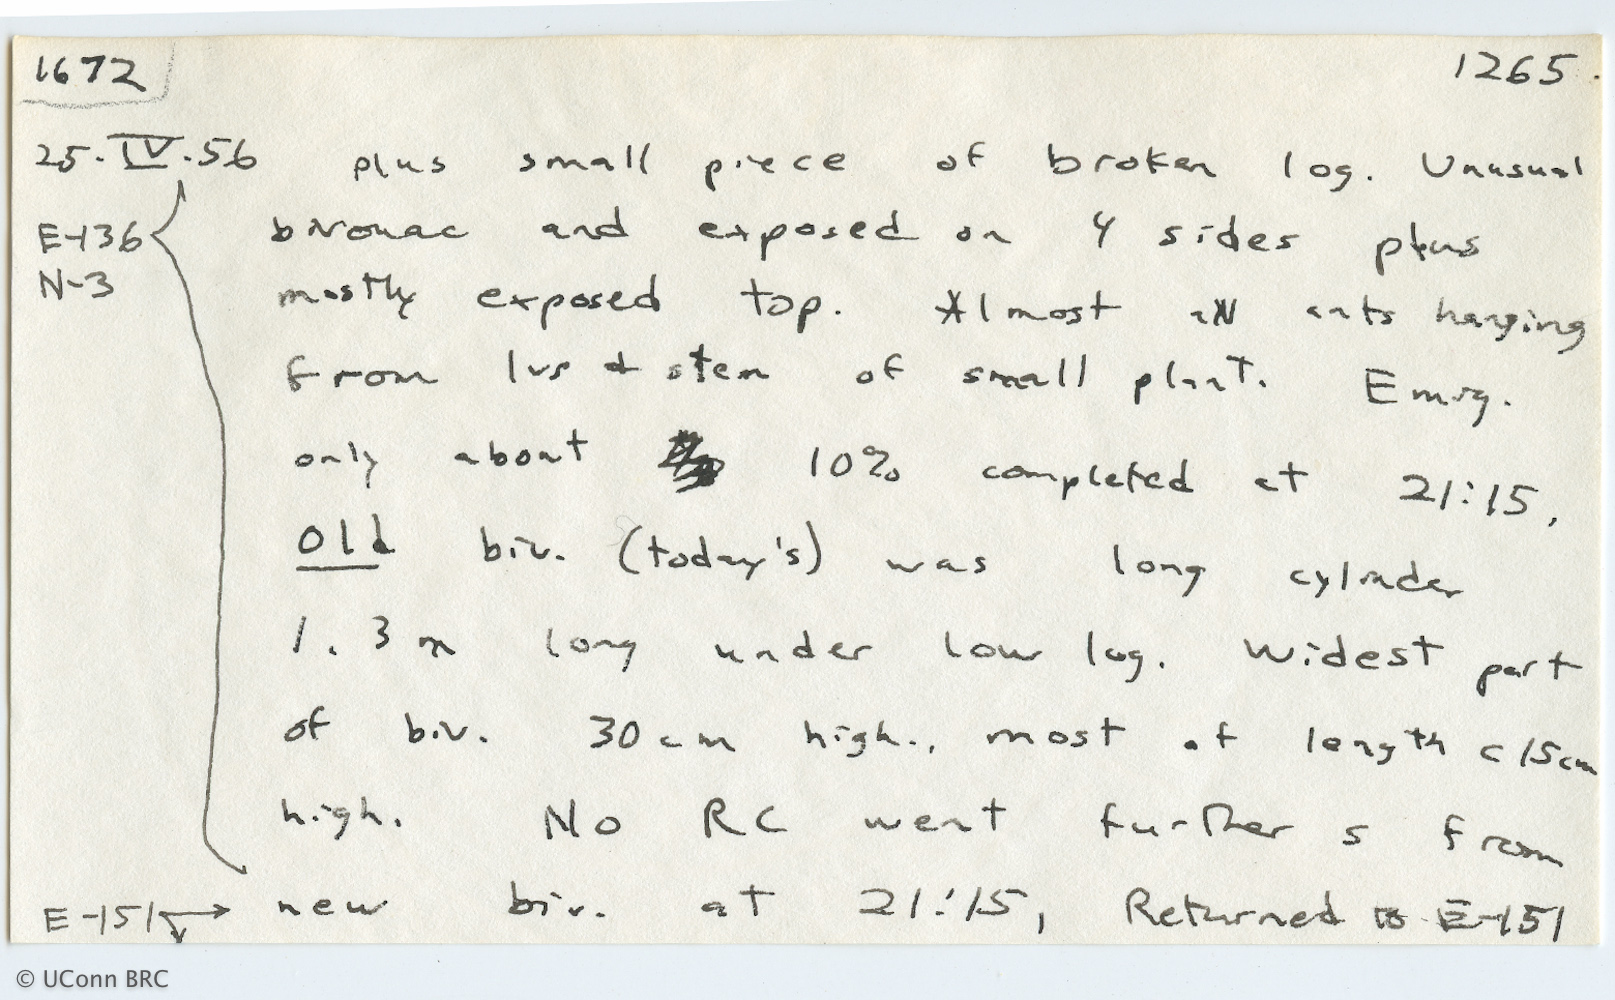 1672 1265.
25.IV.56 plus small piece of broken log. Unusual
E-136 bivouac and exposed on 4 sides plus
N-3 mostly exposed top. Almost all ants hanging
from lvs & stem of small plant. Emig.
only about 10% completed at 21:15.
Old biv. (today's) was long cylinder
1.3 m long under low log. Widest part
of biv. 30 cm high., most of length c 15cm
high. No RC went further S from
E-151 → new biv. at 21:15, Returned to E-151
© UConn BRC